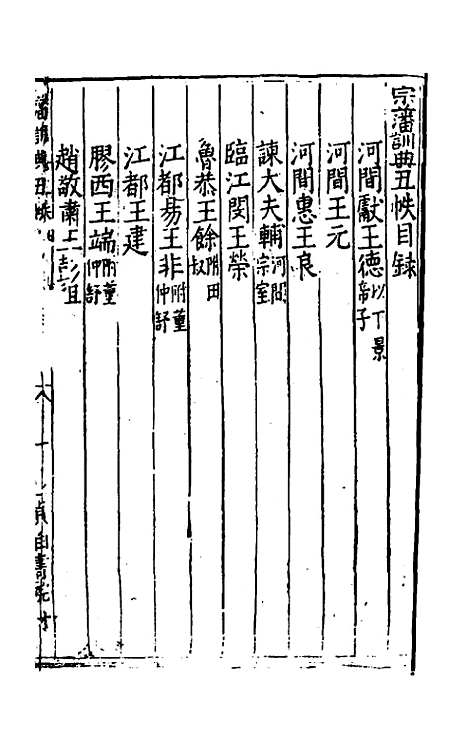 宗藩訓典丑帙目録
河間獻王德以下景帝子
河間王元
河間惠王良
諫大夫輔河間宗室
臨江閔王榮
魯恭王餘附田叔
江都易王非附董仲舒
江都王建
膠西王端附董仲舒
趙敬肅王彭祖
藩訓典丑帙目